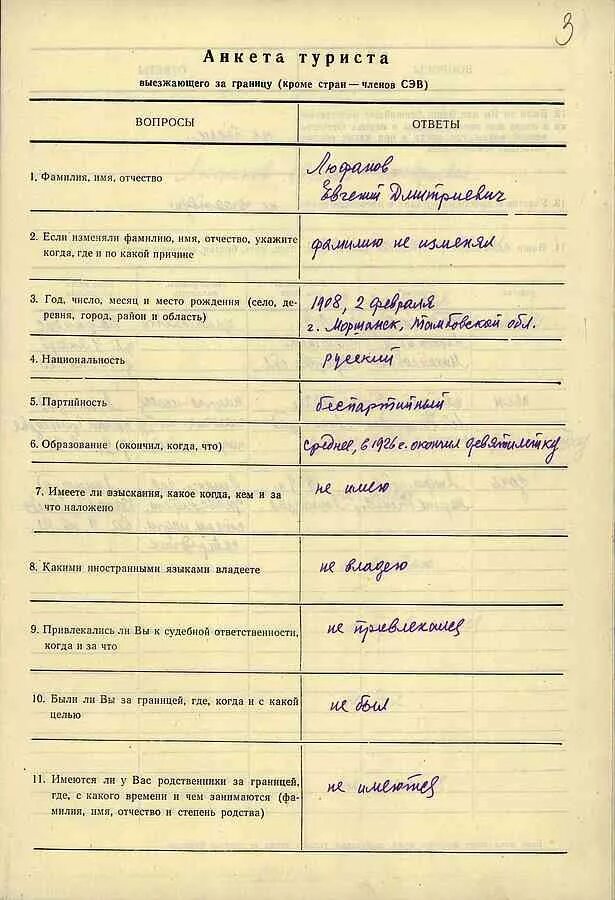 3
Анкета туриста
выезжающего за границу (кроме стран — членов СЭВ)
ВОПРОСЫ
ОТВЕТЫ
1. Фамилия, имя, отчество
Люфанов
Евгений Дмитриевич
2. Если изменяли фамилию, имя, отчество, укажите
когда, где и по какой причине
фамилию не изменял
3. Год, число, месяц и место рождения (село, де-
ревня, город, район и область)
1908, 2 февраля
г. Моршанск, Тамбовской обл.
4. Национальность
русский
5. Партийность
беспартийный
6. Образование (окончил, когда, что)
среднее, в 1926 г. окончил девятилетку
7. Имеете ли взыскания, какое когда, кем и за
что наложено
не имею
8. Какими иностранными языками владеете
не владею
9. Привлекались ли Вы к судебной ответственности,
когда и за что
не привлекался
10. Были ли Вы за границей, где, когда и с какой
целью
не был
11. Имеются ли у Вас родственники за границей,
где, с какого времени и чем занимаются (фа-
милия, имя, отчество и степень родства)
не имеются